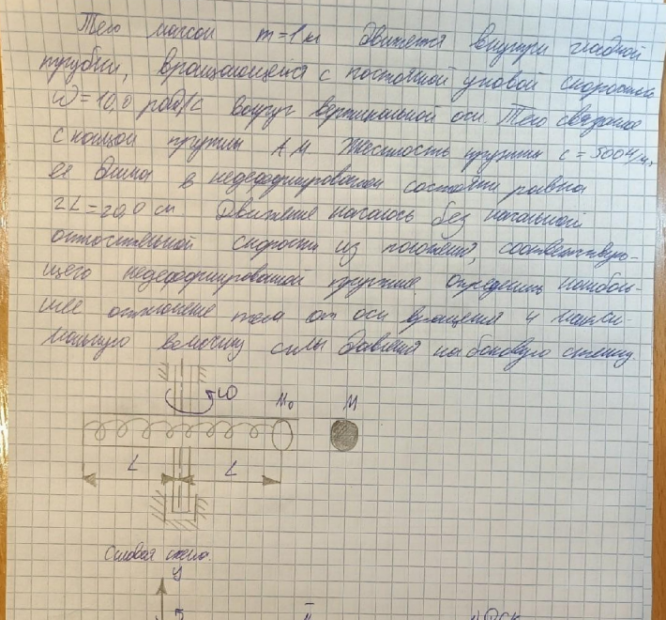 Тело массой m=1 кг движется внутри гладкой
трубки, вращающейся с постоянной угловой скоростью
ω=10,0 рад/с вокруг вертикальной оси Тело связано
с концом пружины AM Жесткость пружины c=500 Н/м,
ее длина в недеформированном состоянии равна
2L=20,0 см Движение началось без начальной
относительной скорости из положения, соответствую-
щего недеформированной пружине. Определить наиболь-
шее отклонение тела от оси вращения и макси-
мальную величину силы давления на боковую стенку.
ω
M₀ M
L L
Силовая схема.
y